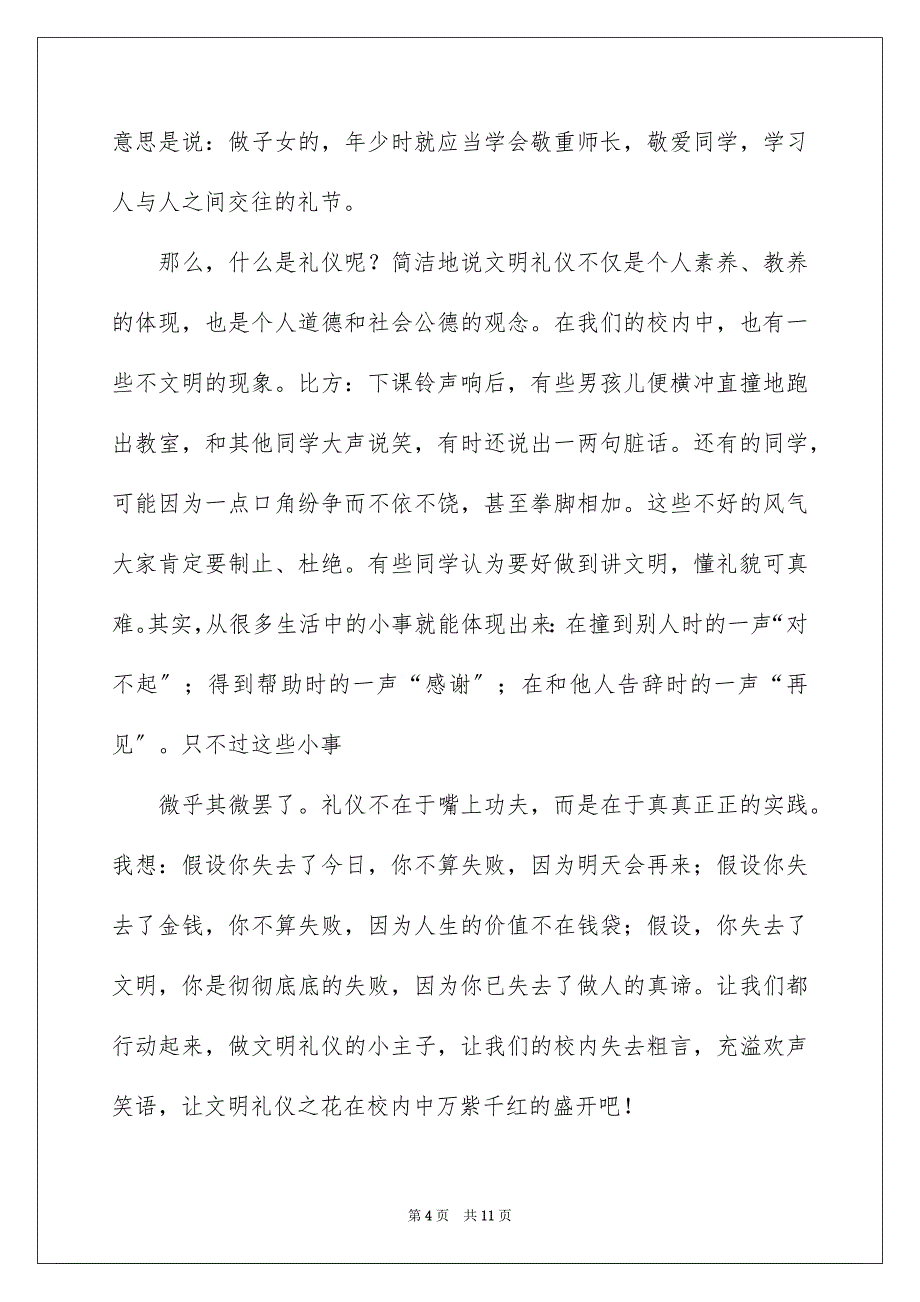 意思是说：做子女的，年少时就应当学会敬重师长，敬爱同学，学习
人与人之间交往的礼节。
那么，什么是礼仪呢？简洁地说文明礼仪不仅是个人素养、教养
的体现，也是个人道德和社会公德的观念。在我们的校内中，也有一
些不文明的现象。比方：下课铃声响后，有些男孩儿便横冲直撞地跑
出教室，和其他同学大声说笑，有时还说出一两句脏话。还有的同学，
可能因为一点口角纷争而不依不饶，甚至拳脚相加。这些不好的风气
大家肯定要制止、杜绝。有些同学认为要好做到讲文明，懂礼貌可真
难。其实，从很多生活中的小事就能体现出来：在撞到别人时的一声“对
不起〞；得到帮助时的一声“感谢〞；在和他人告辞时的一声“再
见〞。只不过这些小事
微乎其微罢了。礼仪不在于嘴上功夫，而是在于真真正正的实践。
我想：假设你失去了今日，你不算失败，因为明天会再来；假设你失
去了金钱，你不算失败，因为人生的价值不在钱袋；假设，你失去了
文明，你是彻彻底底的失败，因为你已失去了做人的真谛。让我们都
行动起来，做文明礼仪的小主子，让我们的校内失去粗言，充溢欢声
笑语，让文明礼仪之花在校内中万紫千红的盛开吧！
第 4 页 共 11 页